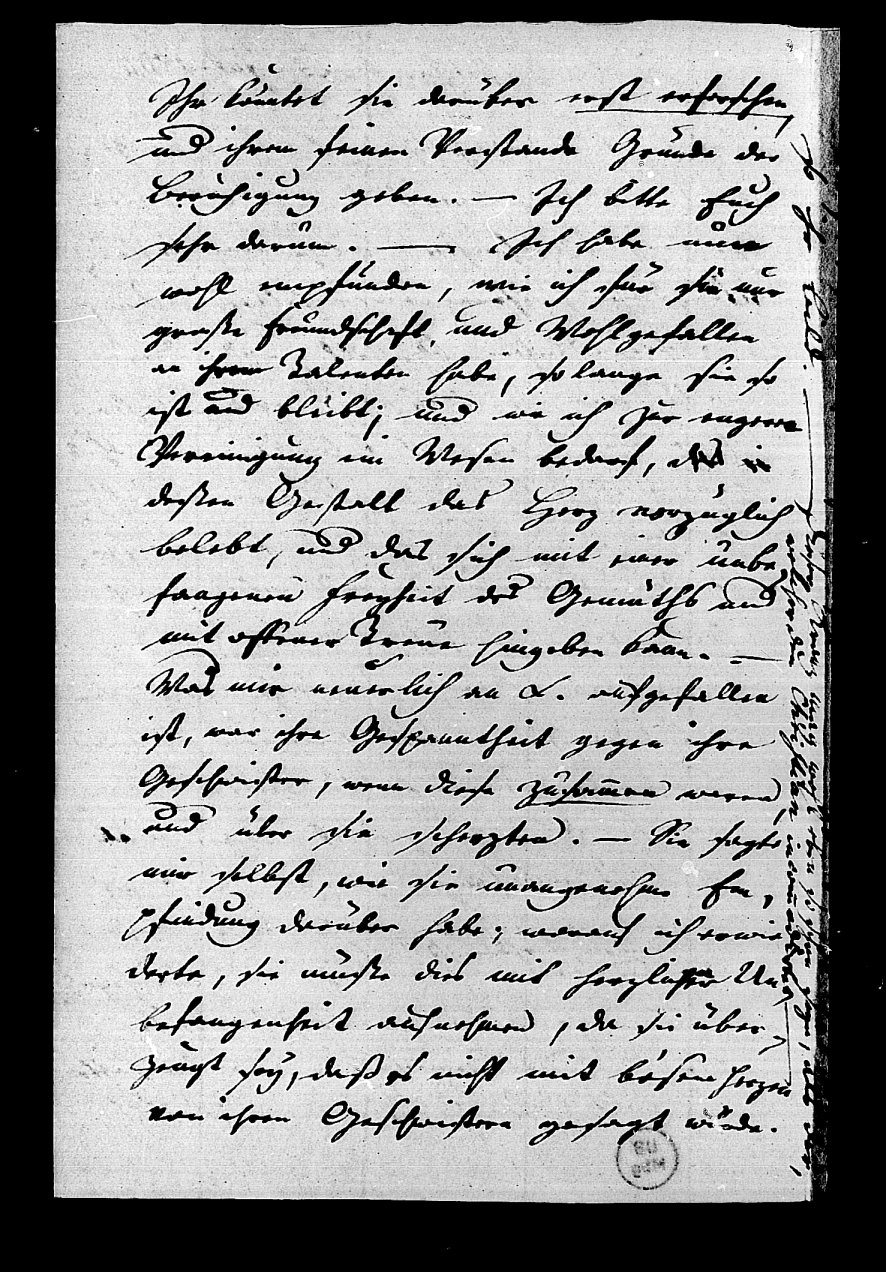 Ihr könntet sie darüber erst erforschen,
und ihrem feinen Verstande Gründe der
Beruhigung geben. — Ich bitte Euch
sehr darum. — Ich habe nun
wohl empfunden, wie ich für sie nur
große Freundschaft und Wohlgefallen
an ihren Talenten habe, so lange sie so
ist und bleibt; und wie ich zur engern
Vereinigung ein Wesen bedarf, das in
deßen Gestalt das Herz vorzüglich
belebt, und das sich mit einer unbe
fangenen Freyheit des Gemüths und
mit offener Treue hingeben kann. —
Was mir neuerlich an L. aufgefallen
ist, war ihre Gespanntheit gegen ihre
Geschwister, wenn diese zusammen waren,
und über sie scherzten. — Sie sagte
mir selbst, wie sie unangenehme Em,
pfindung darüber habe; worauf ich erwie
derte, sie müße dies mit herzlicher Un,
befangenheit aufnehmen, da sie über,
zeugt sey, daß es nicht mit bösem Herzen
von ihren Geschwistern gesagt würde.